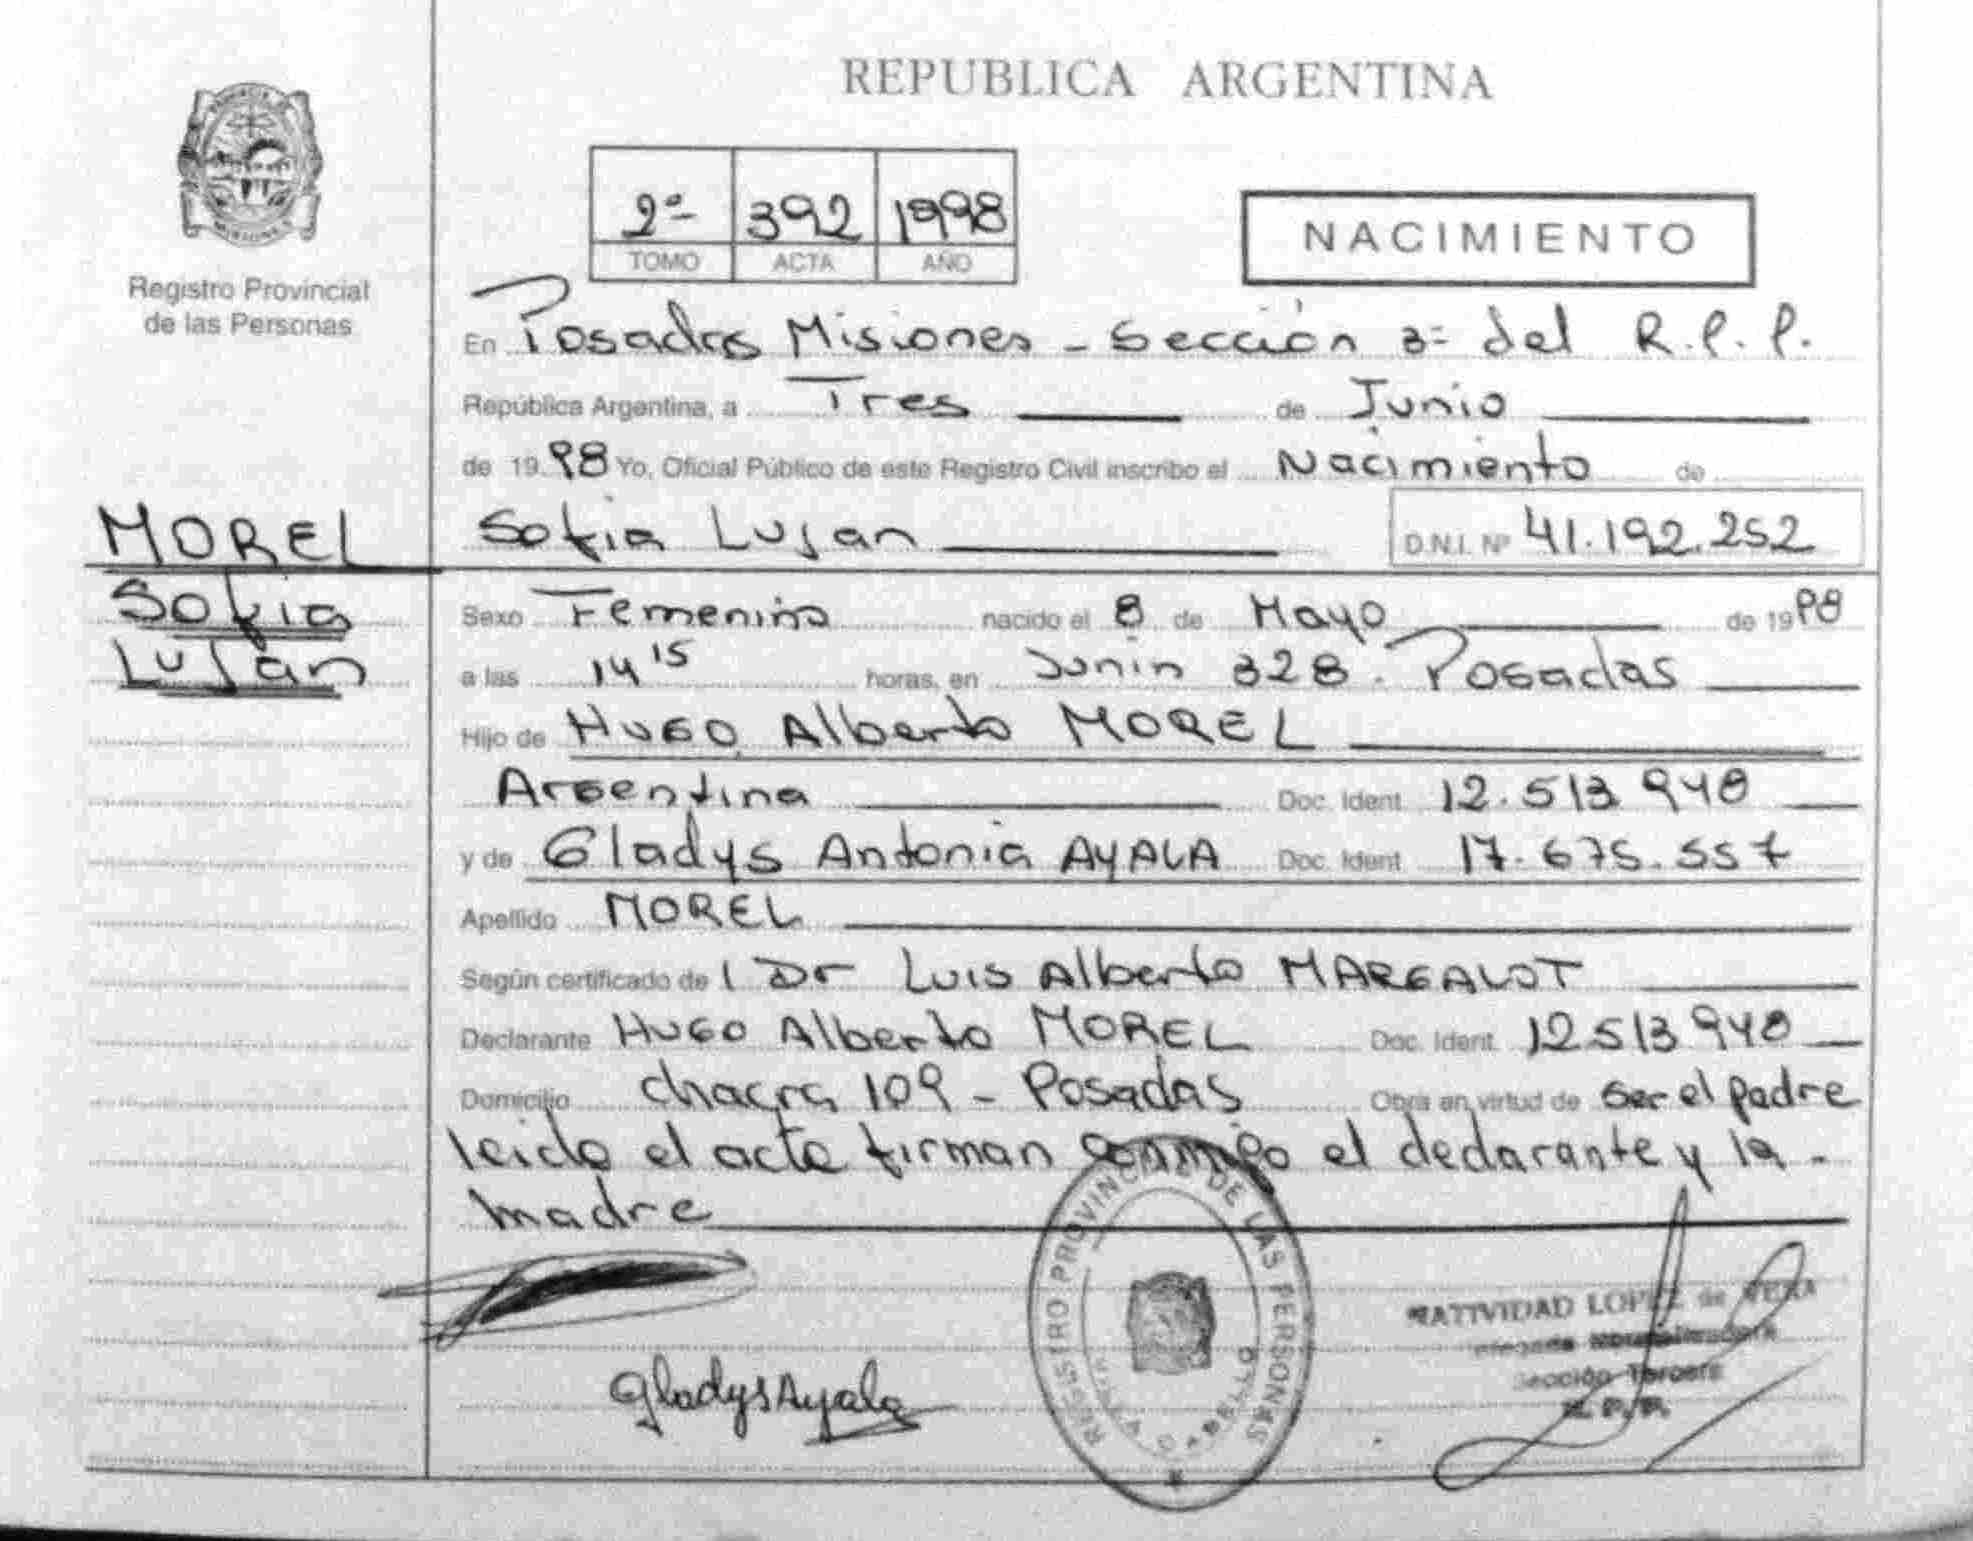 REPUBLICA ARGENTINA
Registro Provincial
de las Personas
2º 392 1998
TOMO ACTA AÑO
NACIMIENTO
En Posadas Misiones - Sección 3ª del R.P.P.
República Argentina, a Tres de Junio
de 1998 Yo, Oficial Público de este Registro Civil inscribo el Nacimiento de
MOREL
Sofia
Luján
Sofia Lujan D.N.I. Nº 41.192.252
Sexo Femenino nacido el 8 de Mayo de 1998
a las 14 15 horas, en Junin 328. Posadas
Hijo de Hugo Alberto MOREL
Argentina Doc. Ident. 12.513.948
y de Gladys Antonia AYALA Doc. Ident. 17.675.557
Apellido MOREL
Según certificado de l Dr Luis Alberto MARGALOT
Declarante Hugo Alberto MOREL Doc. Ident. 12513948
Domicilio chacra 109 - Posadas Obra en virtud de ser el padre
leido el acta firman conmigo el declarante y la -
madre
Gladys Ayala
REGISTRO PROVINCIAL DE LAS PERSONAS
CABELLO
NATIVIDAD LOPEZ de VERA
Sección Tercera
R.P.P.